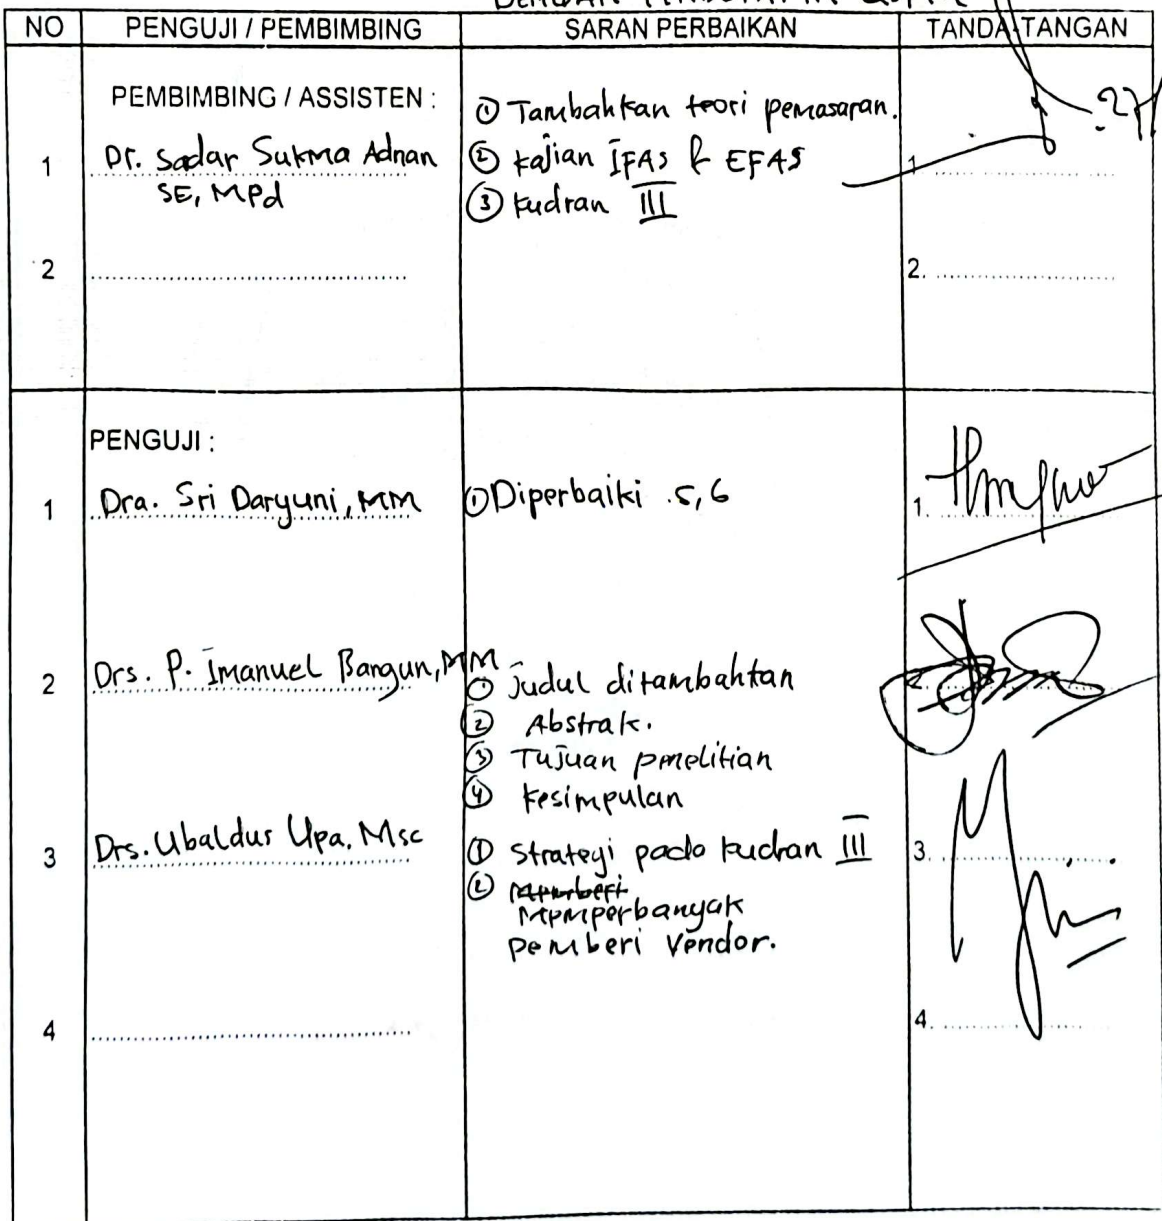 NO PENGUJI / PEMBIMBING SARAN PERBAIKAN TANDA TANGAN
PEMBIMBING / ASSISTEN :
1 Dr. Sadar Sukma Adnan
SE, MPd
① Tambahkan teori pemasaran.
② Kajian IFAS & EFAS
③ Kudran III
1
2 2.
PENGUJI :
1 Dra. Sri Daryuni, MM ① Diperbaiki .5,6 1.
2 Drs. P. Imanuel Bangun, MM
① Judul ditambahkan
② Abstrak.
③ Tujuan penelitian
④ Kesimpulan
2.
3 Drs. Ubaldus Upa. Msc
① Strategi pada kudran III
② Memberi
Memperbanyak
Pemberi Vendor.
3.
4 4.